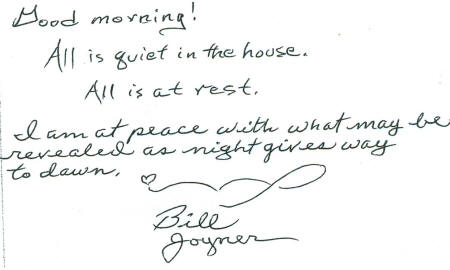 Good morning!
All is quiet in the house.
All is at rest.
I am at peace with what may be
revealed as night gives way
to dawn.
Bill
Joyner